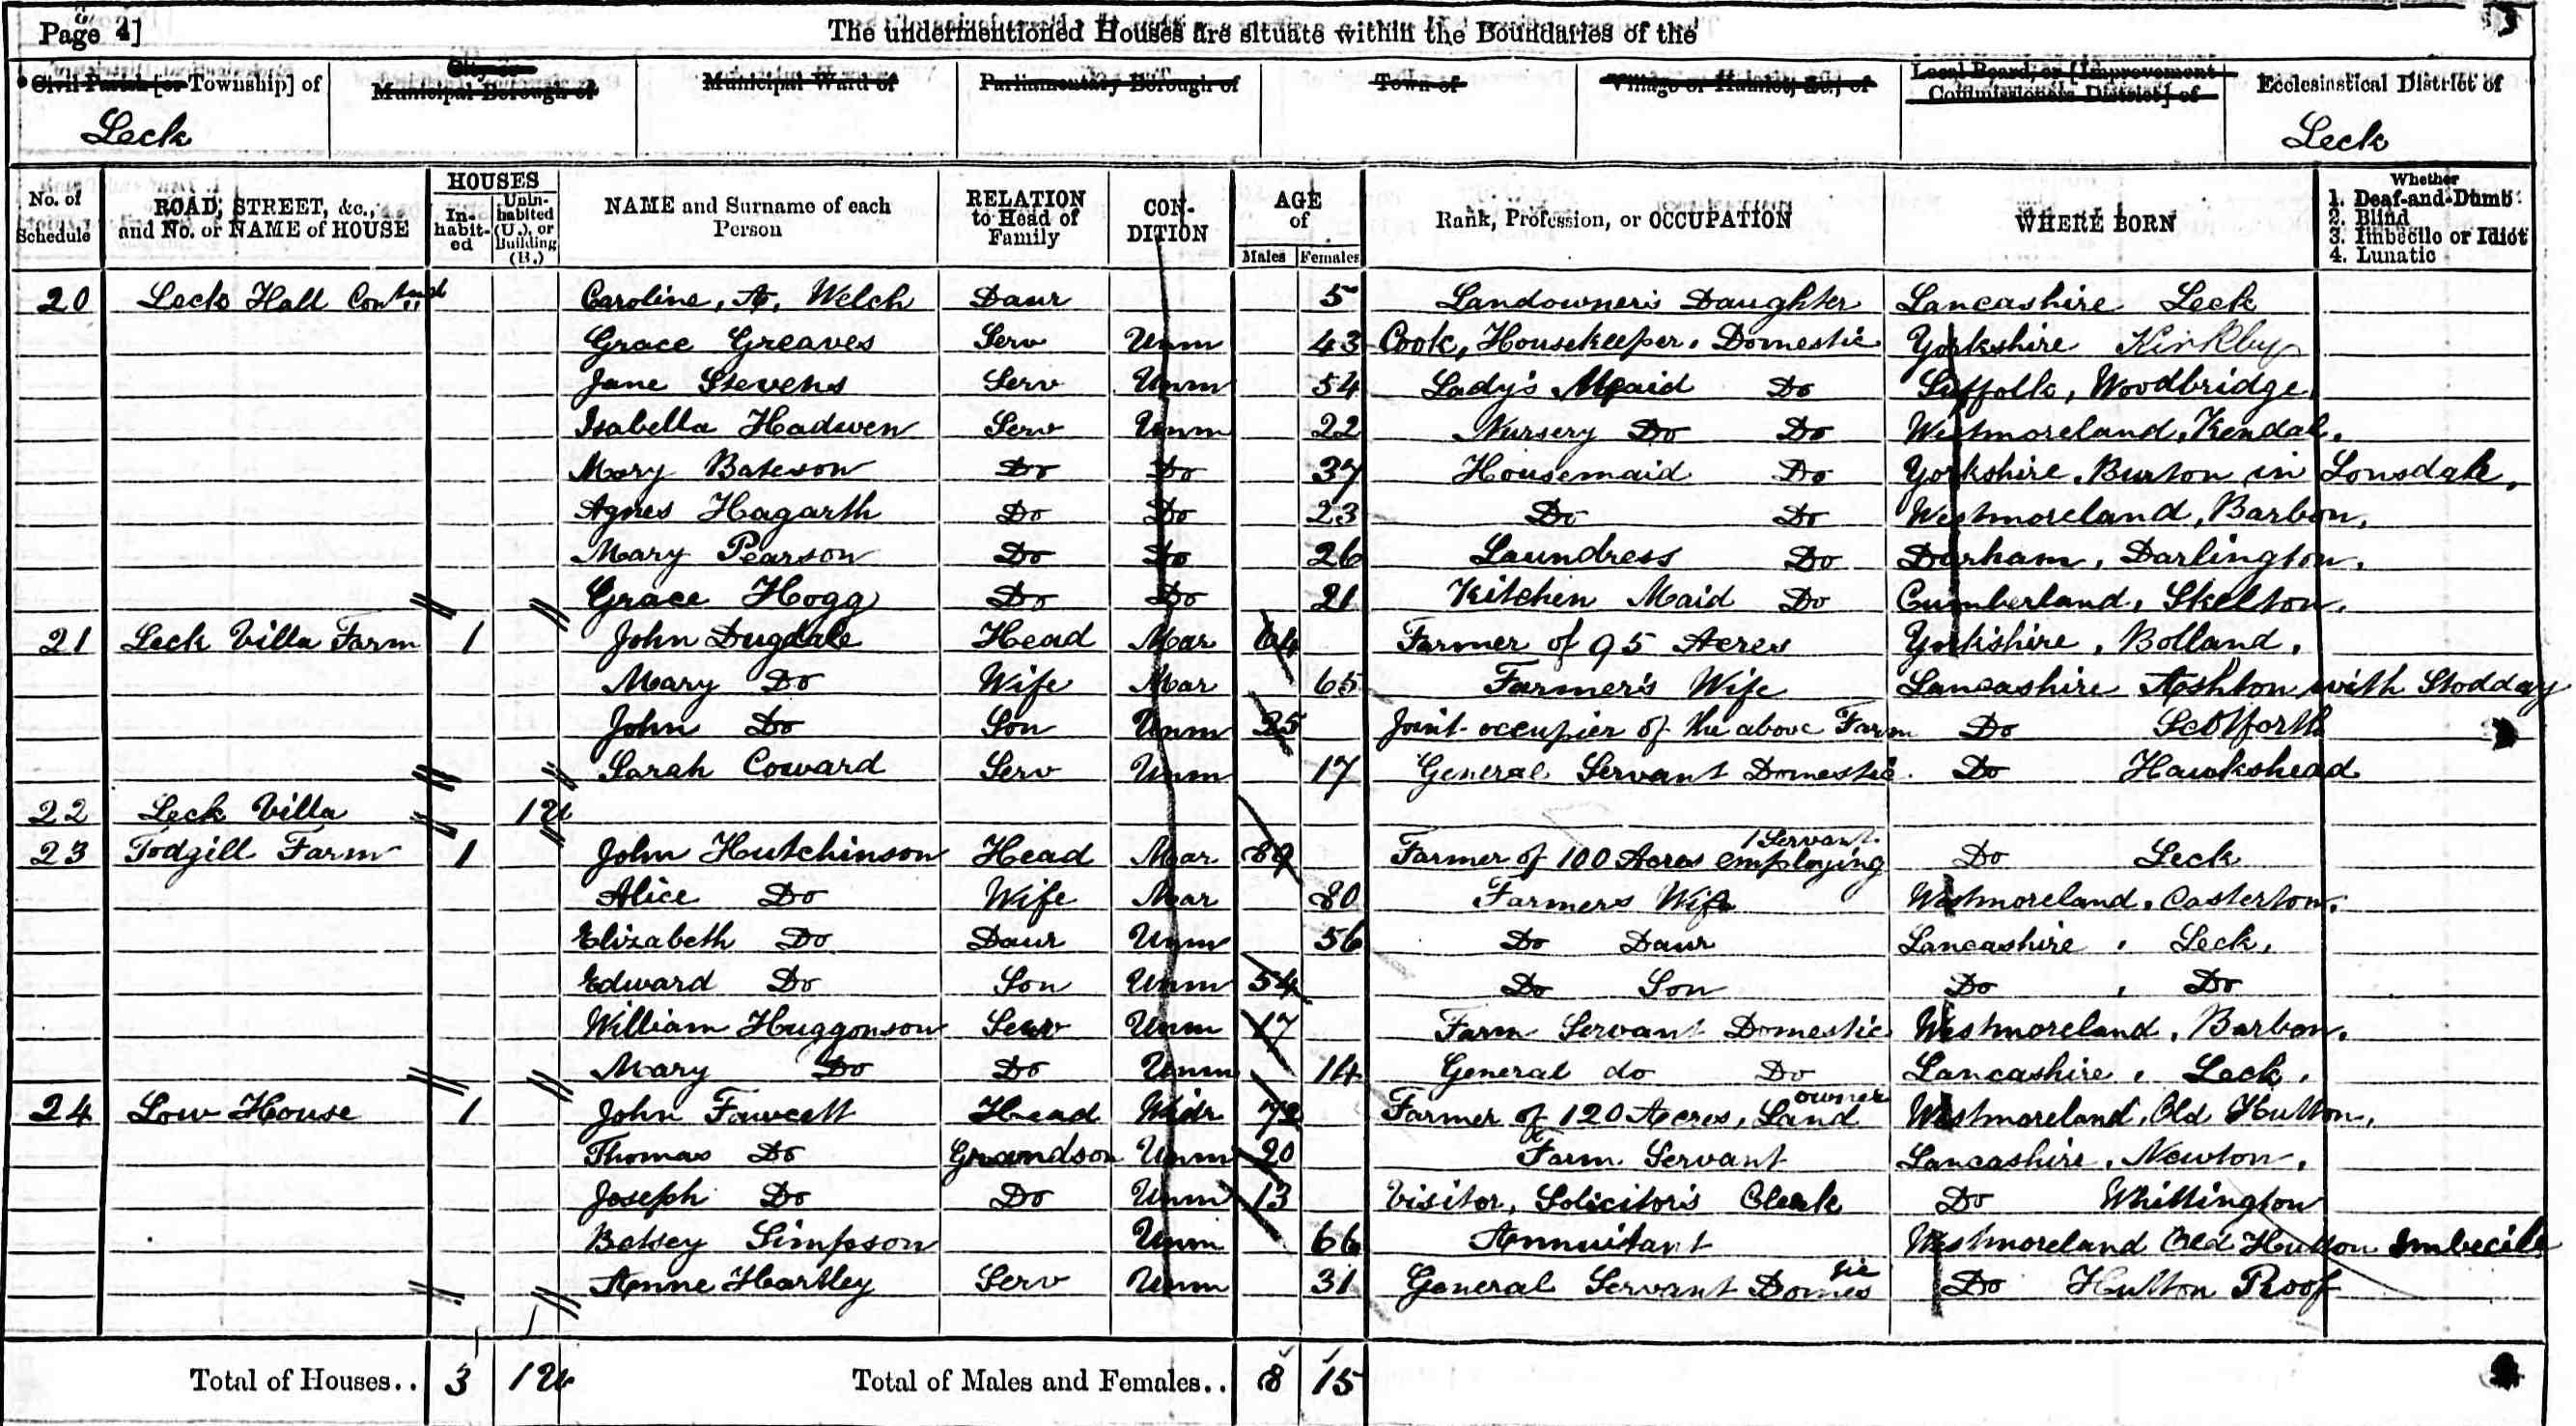 Page 4] The undermentioned Houses are situate within the Boundaries of the
Civil Parish [or Township] of City or Municipal Borough of Municipal Ward of Parliamentary Borough of Town of Village or Hamlet, &c., of Local Board, or [Improvement Commissioners District] of Ecclesiastical District of
Leck Leck
No. of Schedule ROAD, STREET, &c., and No. or NAME of HOUSE HOUSES In-habit-ed Unin-habited (U.), or Building (B.) NAME and Surname of each Person RELATION to Head of Family CON-DITION AGE of Males Females Rank, Profession, or OCCUPATION WHERE BORN Whether 1. Deaf-and-Dumb 2. Blind 3. Imbecile or Idiot 4. Lunatic
20 Leck Hall Contnd Caroline, A, Welch Daur 5 Landowner's Daughter Lancashire Leck
Grace Greaves Serv Unm 43 Cook, Housekeeper. Domestic Yorkshire Kirkby
Jane Stevens Serv Unm 54 Lady's Maid Do Suffolk, Woodbridge.
Isabella Hadwen Serv Unm 22 Nursery Do Do Westmoreland, Kendal.
Mary Bateson Do Do 37 Housemaid Do Yorkshire. Burton in Lonsdale.
Agnes Hagarth Do Do 23 Do Do Westmoreland, Barbon.
Mary Pearson Do Do 26 Laundress Do Durham, Darlington.
Grace Hogg Do Do 21 Kitchen Maid Do Cumberland, Skelton.
21 Leck Villa Farm 1 John Dugdale Head Mar 64 Farmer of 95 Acres Yorkshire, Bolland.
Mary Do Wife Mar 65 Farmer's Wife Lancashire Ashton with Stodday
John Do Son Unm 25 Joint occupier of the above Farm Do Scotforth
Sarah Coward Serv Unm 17 General Servant Domestic. Do Hawkshead
22 Leck Villa 1U
23 Todgill Farm 1 John Hutchinson Head Mar Farmer of 100 Acres employing 1 Servant. Do Leck
Alice Do Wife Mar 80 Farmers Wife Westmoreland. Casterton.
Elizabeth Do Daur Unm 56 Do Daur Lancashire, Leck.
Edward Do Son Unm 54 Do Son Do, Do
William Huggonson Serv Unm 17 Farm Servant Domestic Westmoreland, Barbon.
Mary Do Do Unm 14 General do Do Lancashire, Leck.
24 Low House 1 John Fawcett Head Widr 72 Farmer of 120 Acres, Land owner Westmoreland, Old Hutton.
Thomas Do Grandson Unm 20 Farm Servant Lancashire, Newton.
Joseph Do Do Unm 13 Visitor, Solicitor's Clerk Do Whittington
Betsey Simpson Unm 66 Annuitant Westmoreland Old Hutton Imbecile
Anne Hartley Serv Unm 31 General Servant Domestic Do Hutton Roof
Total of Houses.. 3 1U Total of Males and Females.. 8 15